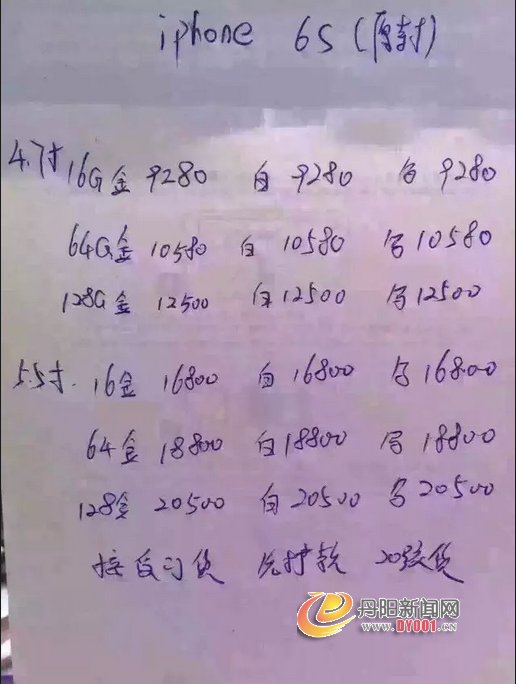 iphone 6S (原封)
4.7寸 16G金 9280 白 9280 9280
64G金 10580 白 10580 10580
128G金 12500 白 12500 12500
5.5寸. 16金 16800 白 16800 16800
64金 18800 白 18800 18800
128金 20500 白 20500 20500
接受订货 先打款 20号发货
丹阳新闻网
WWW.DY001.CN